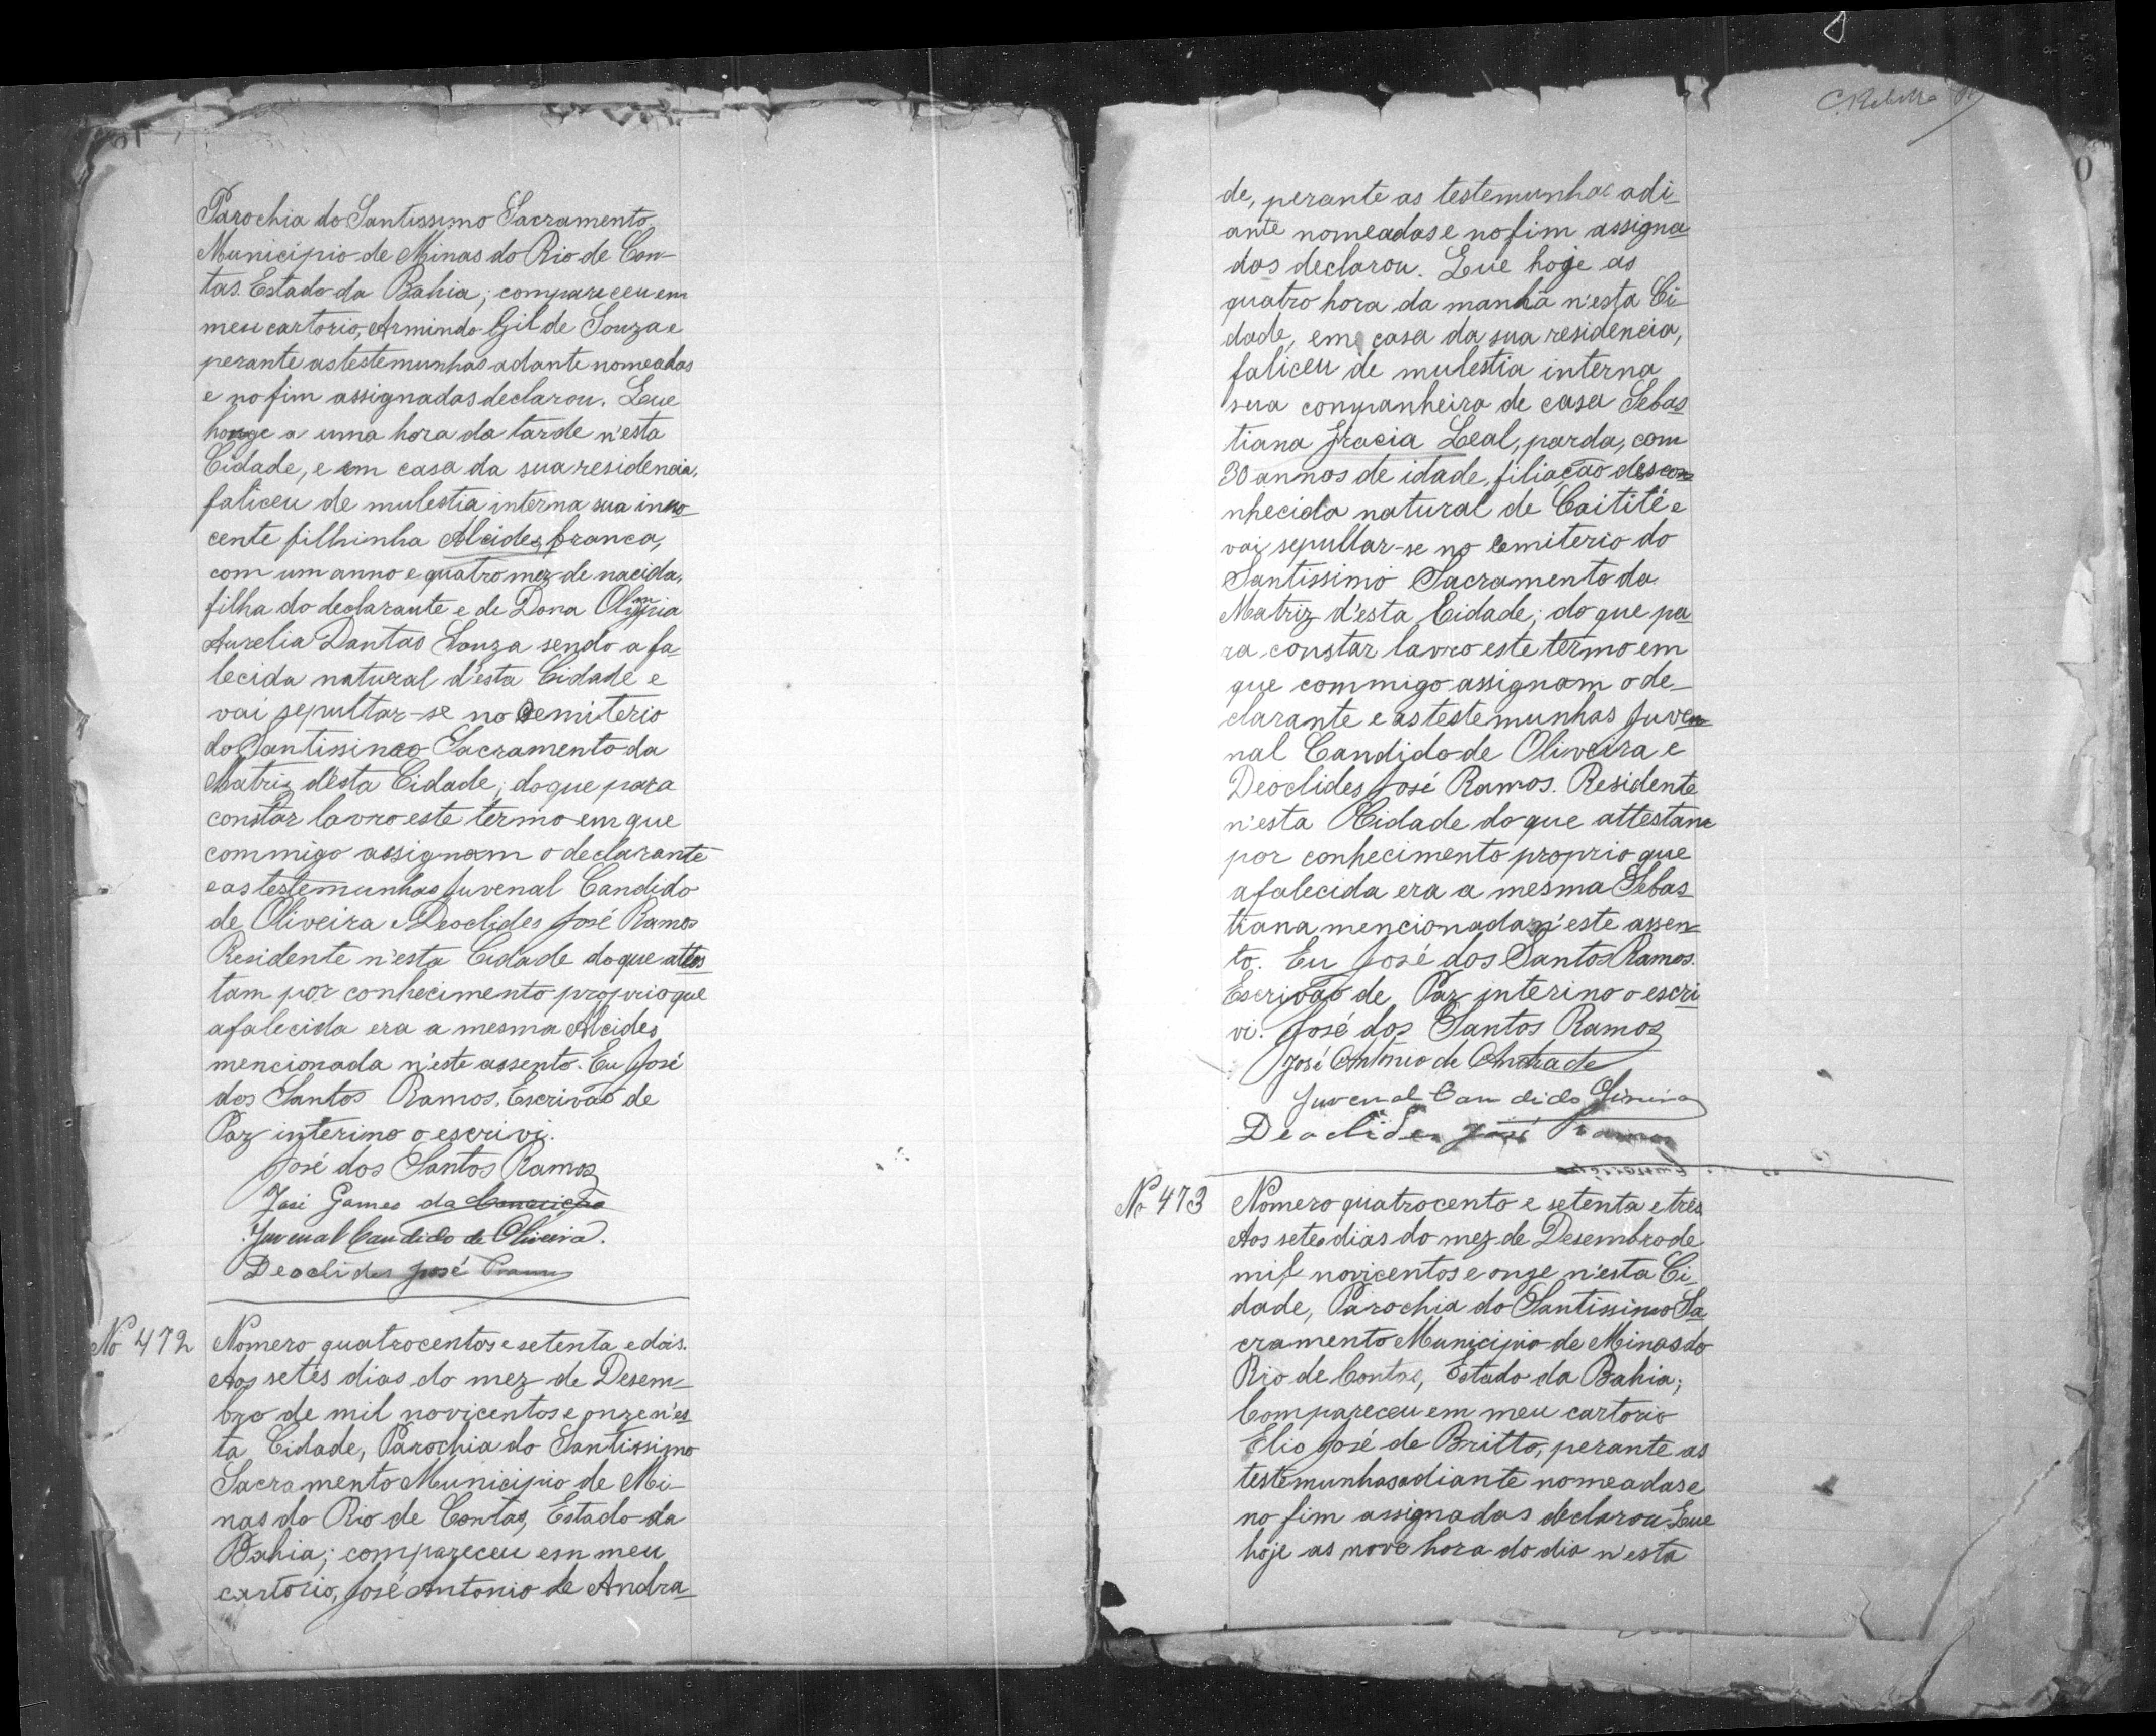 Parochia do Santissimo Sacramento
Municipio de Minas do Rio de Con-
tas. Estado da Bahia; compareceu em
meu cartorio, Armindo Gil de Souza e
perante as testemunhas adante nomeadas
e no fim assignadas declarou. Que
a uma hora da tarde n'esta
Cidade, e em casa da sua residencia,
faliceu de mulestia interna sua inno-
cente filhinha Alcides, branca,
com um anno e quatro mez de nacida,
filha do declarante e de Dona Olimpia
Aurelia Dantas Souza sendo a fa-
lecida natural d'esta Cidade e
vai sepultar-se no Cemiterio
do Santissimo Sacramento da
Matriz d'esta Cidade; do que para
constar lavro este termo em que
commigo assignam o declarante
e as testemunhas Juvenal Candido
de Oliveira e Deoclides José Ramos
Residente n'esta Cidade do que attes
tam por conhecimento proprio que
a falecida era a mesma Alcides
mencionada n'este assento. Eu José
dos Santos Ramos. Escrivão de
Paz interino o escrivi.
José dos Santos Ramos
José Gomes da Conceição
Juvenal Candido de Oliveira.
Deoclides José Ramos
No 472
Nomero quatrocentos e setenta e dois.
Aos setes dias do mez de Desem-
bro de mil novicentos e onze n'es
ta Cidade, Parochia do Santissimo
Sacramento Municipio de Mi-
nas do Rio de Contas, Estado da
Bahia; compareceu em meu
cartorio, José Antonio de Andra-
de, perante as testemunhas adi-
ante nomeadas e no fim assigna
das declarou. Que hoje as
quatro hora da manhã n'esta Ci-
dade, em casa da sua residencia,
faliceu de mulestia interna
sua companheira de casa Sebas
tiana Gracia Leal, parda, com
30 annos de idade, filiação descon-
nhecida natural de Caitité e
vai sepultar-se no Cemiterio do
Santissimo Sacramento da
Matriz d'esta Cidade; do que pa
ra constar lavro este termo em
que commigo assignam o de-
clarante e as testemunhas Juve
nal Candido de Oliveira e
Deoclides José Ramos. Residente
n'esta Cidade do que attestam
por conhecimento proprio que
a falecida era a mesma Sebas
tiana mencionada n'este assen-
to. Eu José dos Santos Ramos.
Escrivão de Paz interino o escri
vi. José dos Santos Ramos
José Antonio de Andrade
Juvenal Candido Oliveira
Deoclides José Ramos
No 473
Nomero quatrocento e setenta e três
Aos setes dias do mez de Desembro de
mil novicentos e onze n'esta Ci-
dade, Parochia do Santissimo Sa
cramento Municipio de Minas do
Rio de Contas, Estado da Bahia;
Compareceu em meu cartorio
Elio José de Britto, perante as
testemunhas adiante nomeadas e
no fim assignadas declarou Que
hoje as nove hora do dia n'esta